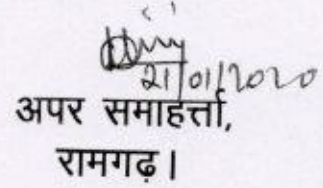 21/01/2020
अपर समाहर्त्ता,
रामगढ़।